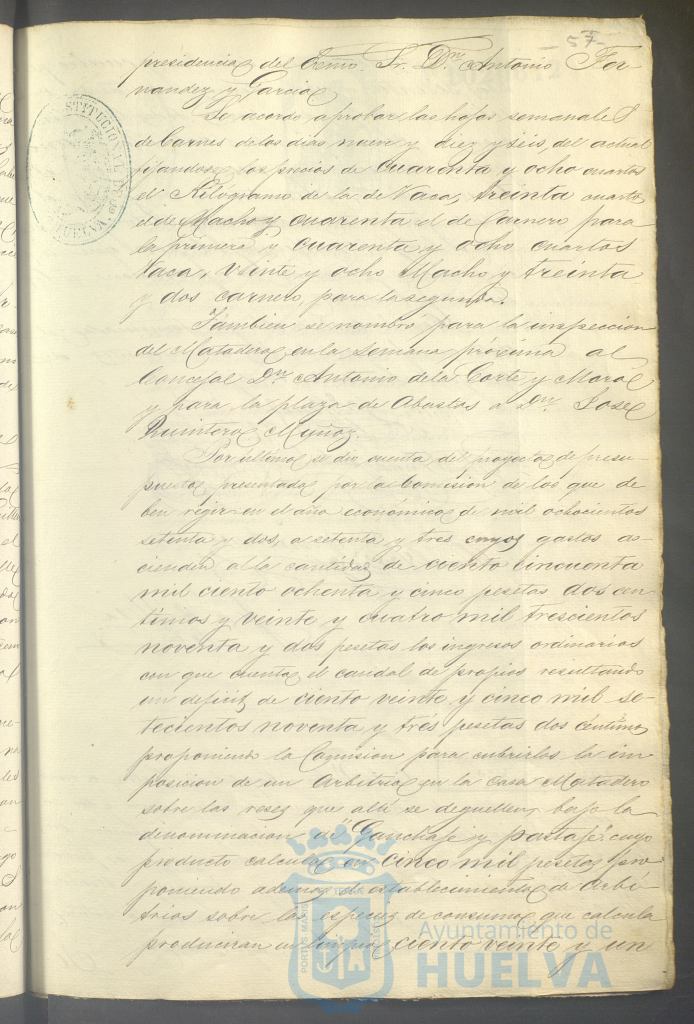 - 57 -
presidencia del Excmo. Sr. Dn. Antonio Fer
nandez y Garcia
Se acordó aprobar las hojas semanales
de Carnes de los dias nueve y diez y seis del actual
fijandose los precios de cuarenta y ocho cuartos
el Kilogramo de la de Vaca, treinta cuartos
el de Macho y cuarenta el de Carnero para
la primera y cuarenta y ocho cuartos
Vaca, Veinte y ocho Macho y treinta
y dos carnero, para la segunda.
Tambien se nombró para la inspeccion
del Matadero en la semana próxima al
Concejal Dn. Antonio de la Corte y Moral
y para la plaza de Abastos a Dn. José
Quintero Muñoz.
Por último se dio cuenta del proyecto de presu-
puestos presentado por la Comision de los que de
ben regir en el año económico de mil ochocientos
setenta y dos, a setenta y tres cuyos gastos as-
cienden a la cantidad de ciento cincuenta
mil ciento ochenta y cinco pesetas dos cen
timos y veinte y cuatro mil trescientos
noventa y dos pesetas los ingresos ordinarios
con que cuenta el caudal de propios resultando
un deficit de ciento veinte y cinco mil se-
tecientos noventa y tres pesetas dos céntimos
proponiendo la Comision para cubrirlos la im-
posicion de un Arbitrio en la Casa Matadero
sobre las reses que allí se degüellen bajo la
denominacion de "Ganchaje y portaje" cuyo
producto calcula en cinco mil pesetas pro-
poniendo ademas el establecimiento de Arbi-
trios sobre las especies de consumo que calcula
produciran un ciento veinte y un
INSTITUCIONAL DE
HUELVA
PORTUS MARIS
Ayuntamiento de
HUELVA